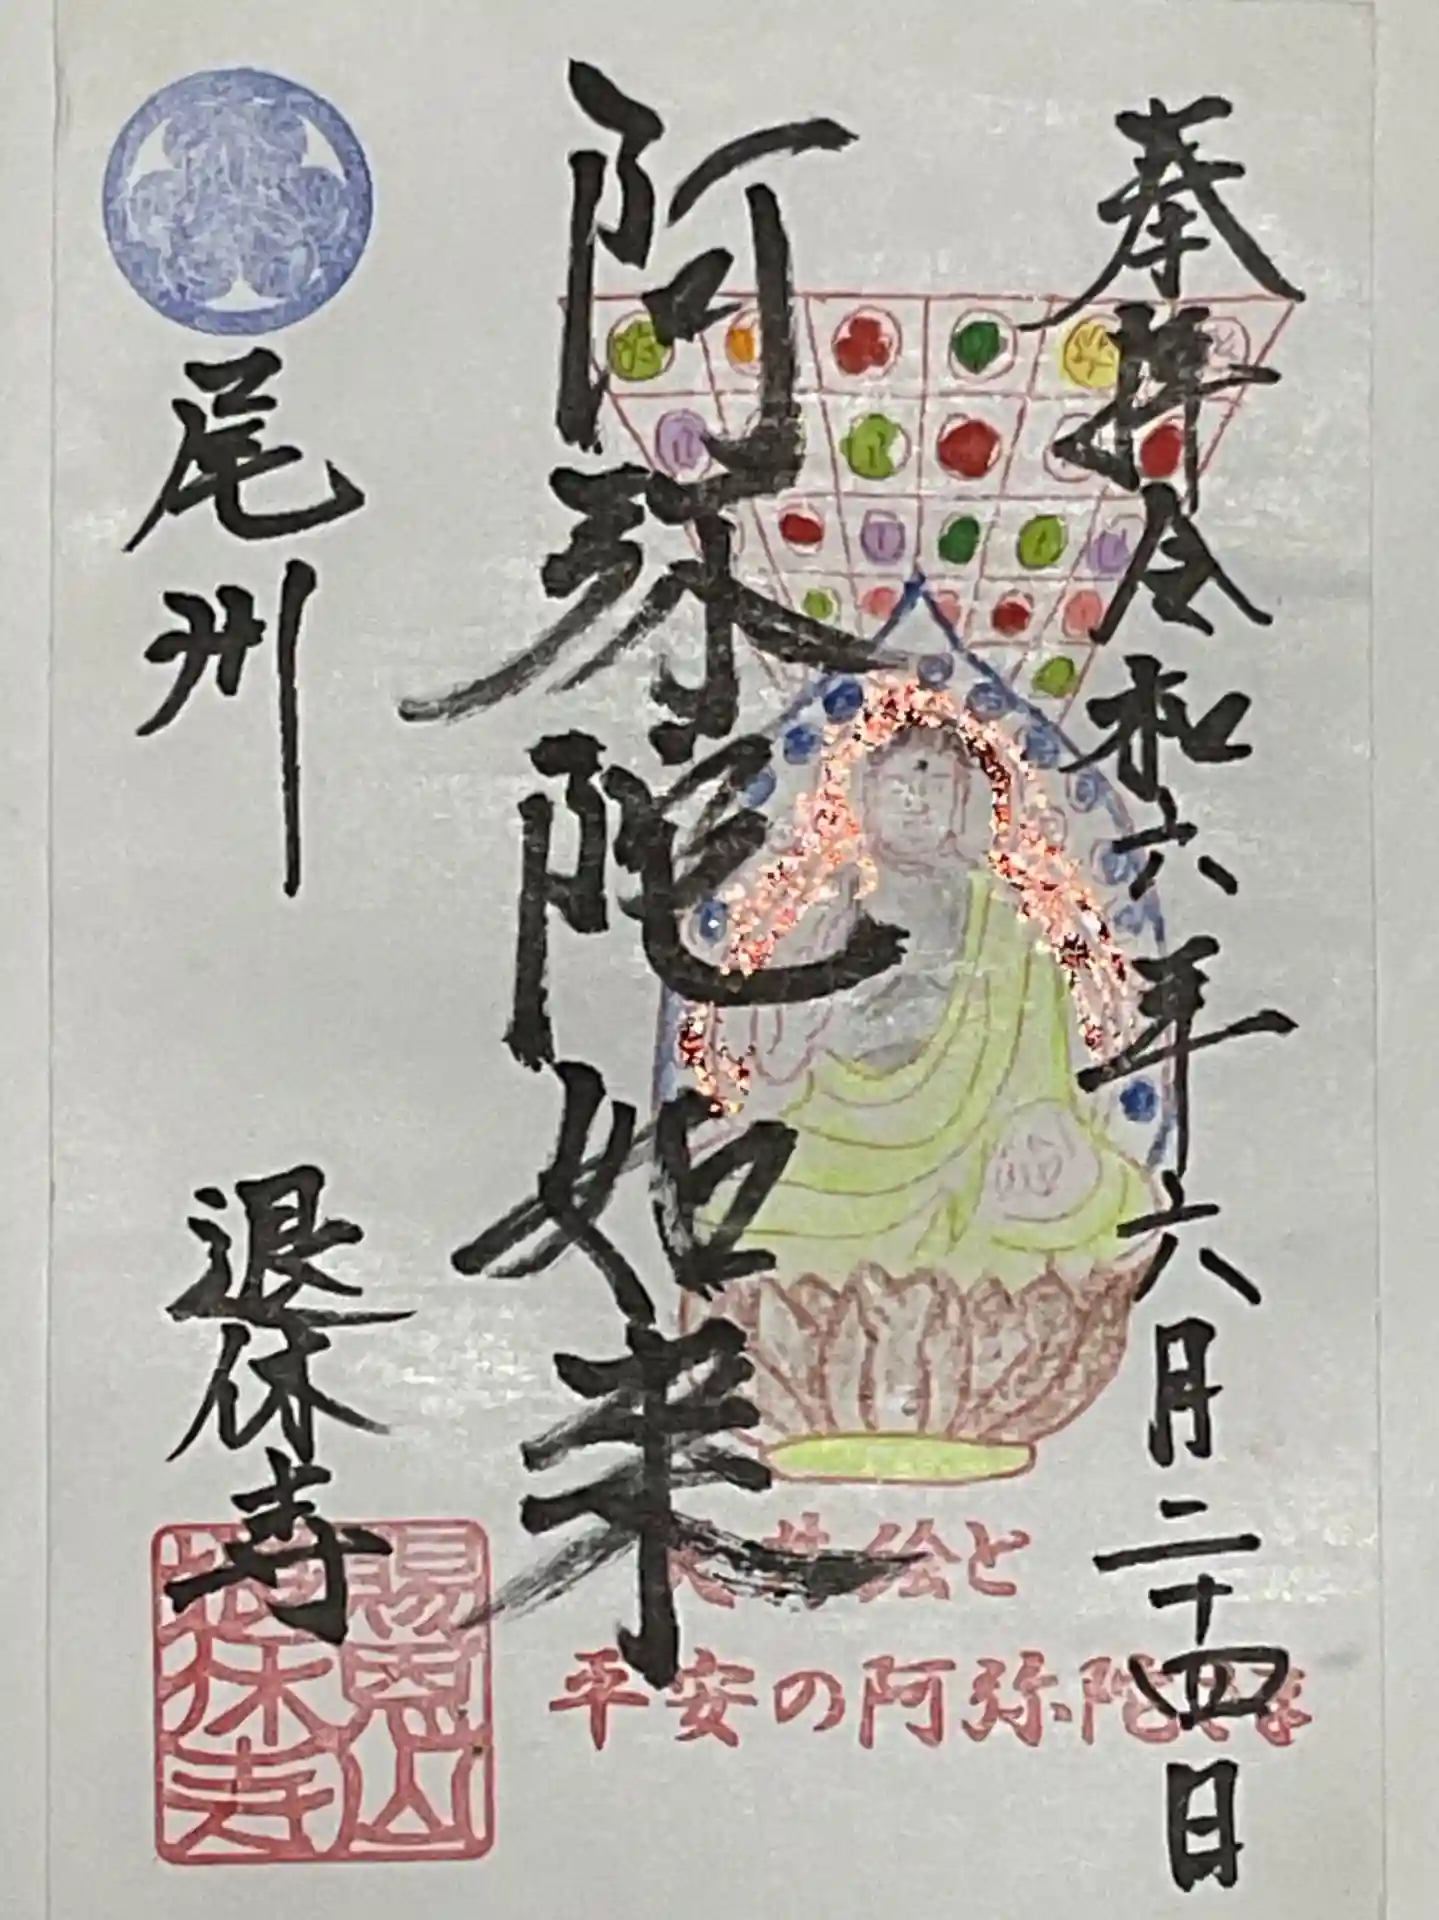 奉拝 令和六年六月二十四日
阿弥陀如来
尾州 退休寺
天井絵と
平安の阿弥陀様
賜恩山
退休寺